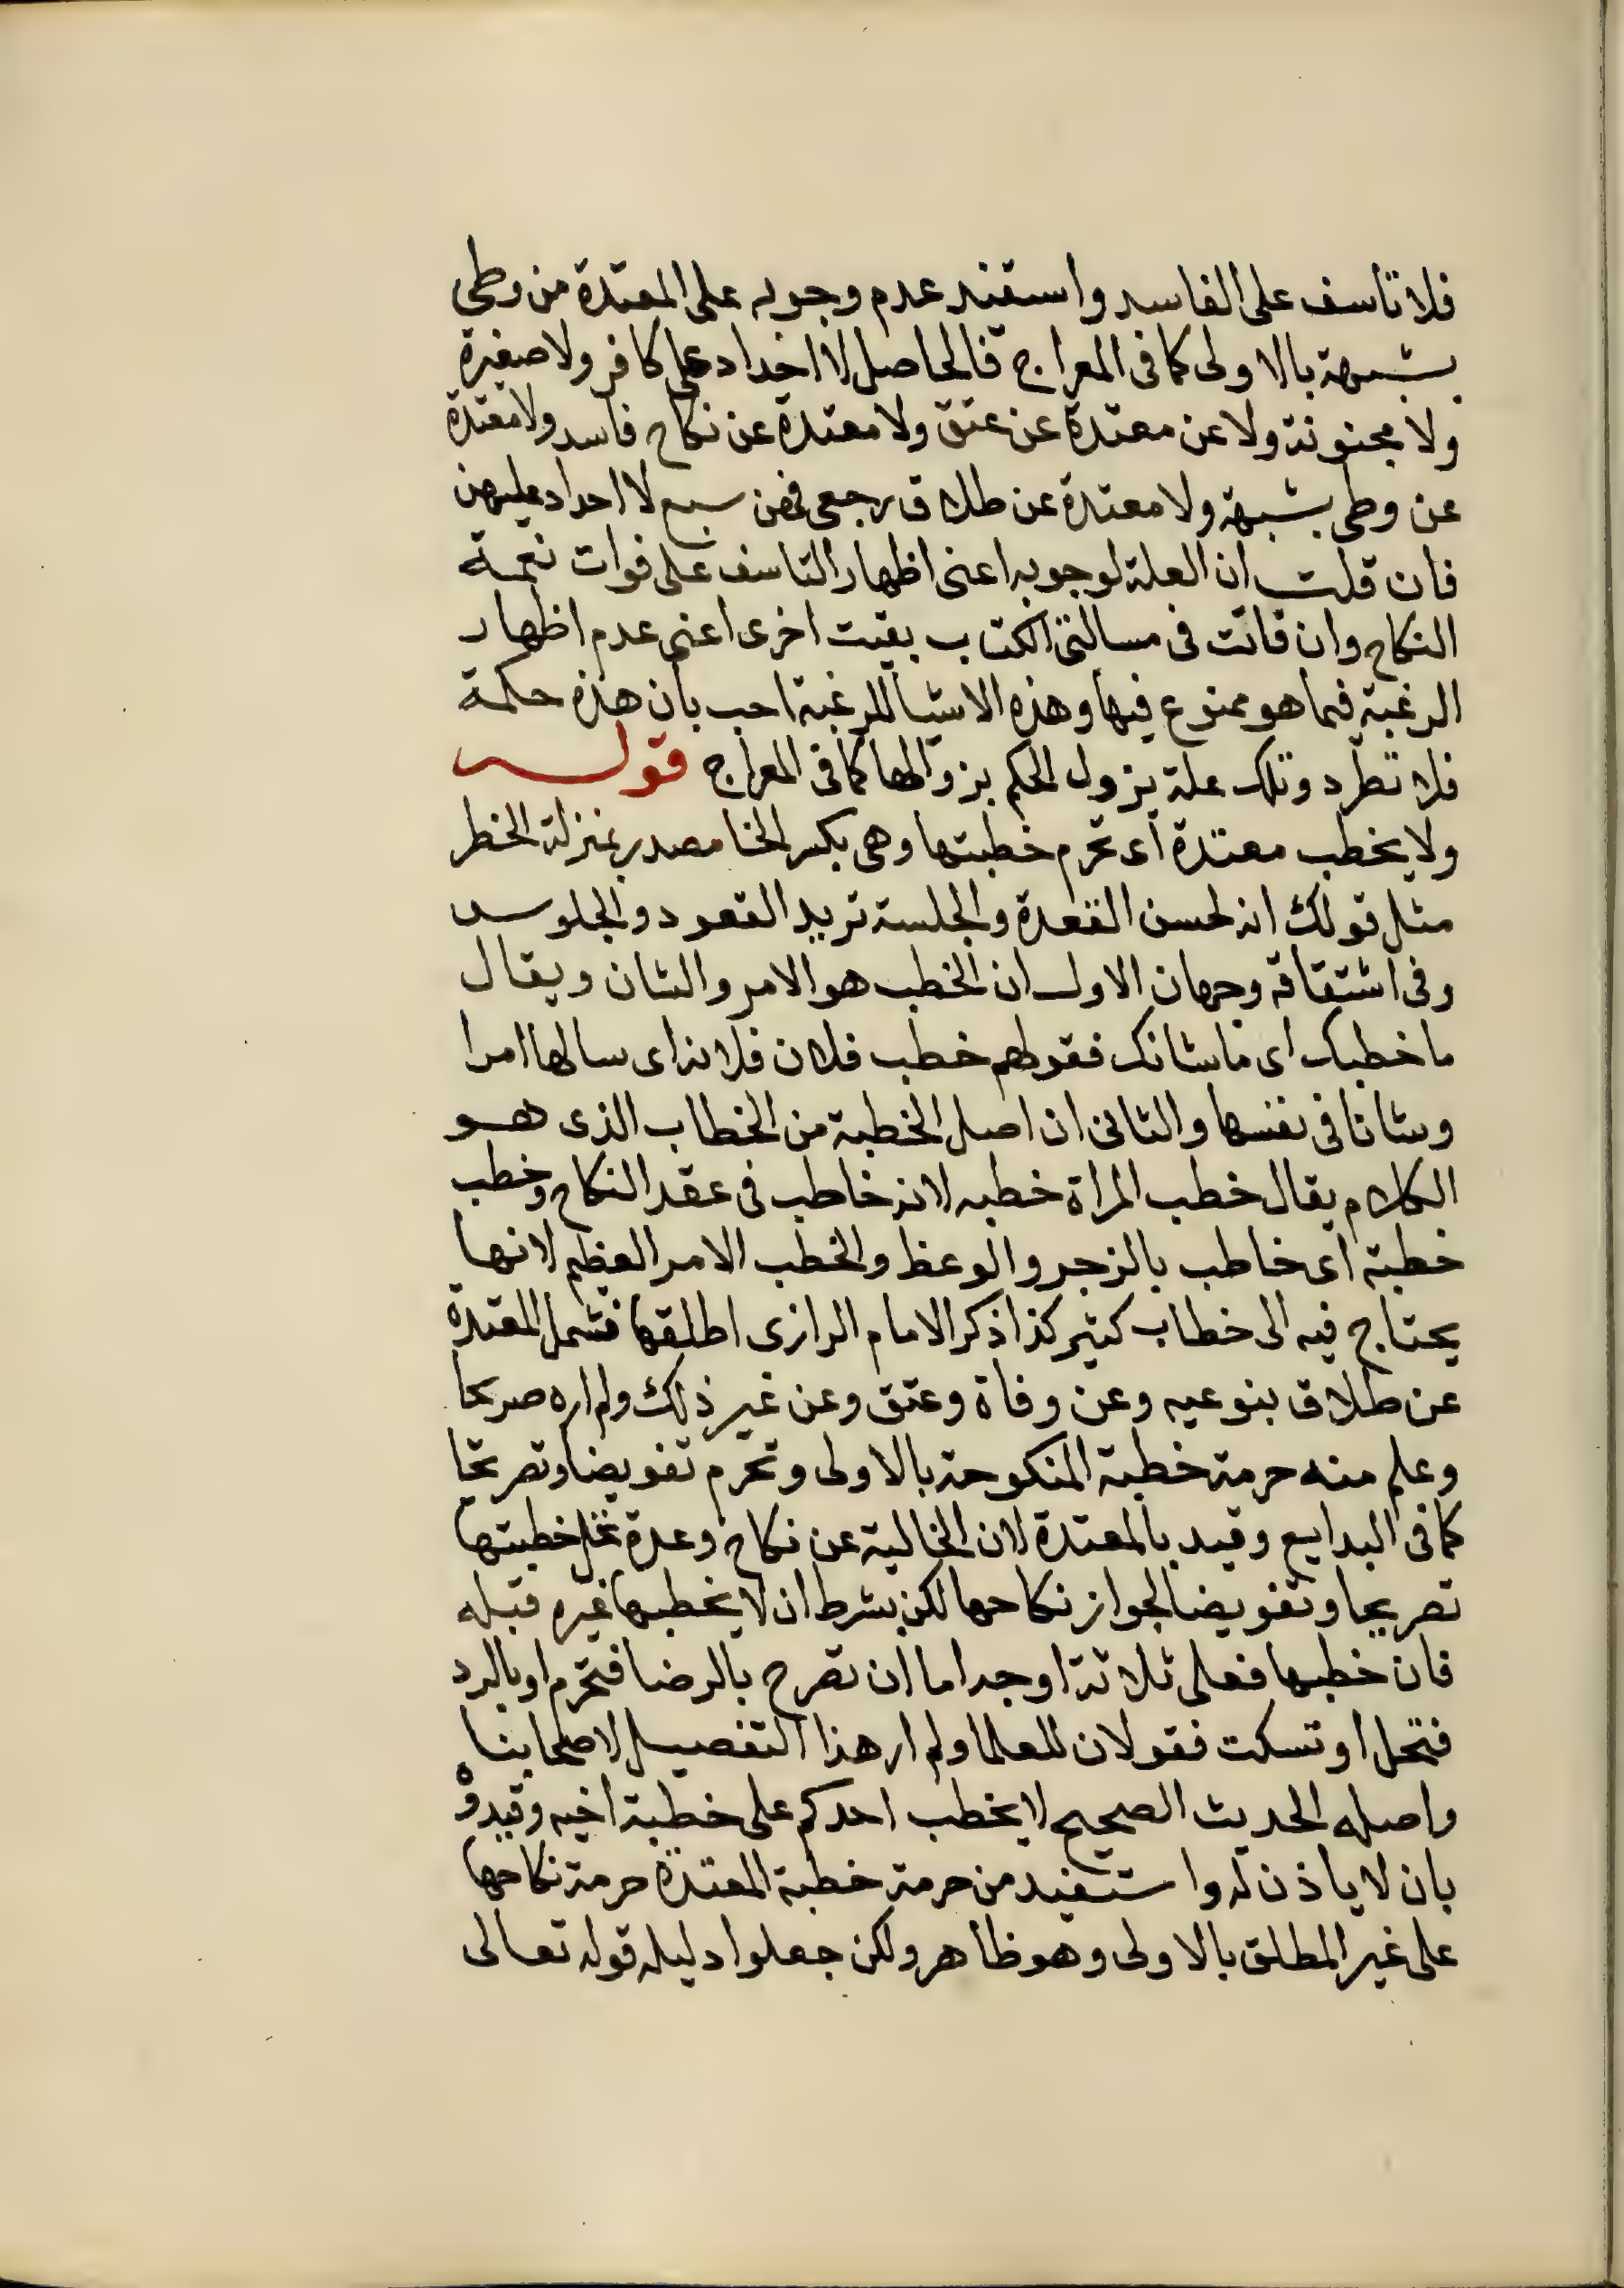 فلا تاسف على الفاسد واستفيد عدم وجوبه على المعتدة من وطى
بشبهة بالاولى كما فى المعراج فالحاصل لا احداد على كافر ولا صغيرة
ولا مجنونة ولا عن معتدة عن عتق ولا معتدة عن نكاح فاسد ولا معتدة
عن وطى بشبهة ولا معتدة عن طلاق رجعى فهن سبع لا احداد عليهن
فان قلت ان العلة لوجوبه اعنى اظهار التاسف على فوات نعمة
النكاح وان فاتت فى مسالتى الكتاب بقيت اخرى اعنى عدم اظهار
الرغبة فيما هو ممنوع فيها وهذه الاشيا للرغبة اجب بان هذه حكمة
فلا تطرد وتلك علة يزول الحكم بزوالها كما فى المعراج قوله
ولا يخطب معتدة اى تحرم خطبتها وهى بكسر الخا مصدر بمنزلة الخطر
مثل قولك انه لحسن القعدة والجلسة تريد القعود والجلوس
وفى اشتقاقه وجهان الاول ان الخطب هو الامر والشان ويقال
ما خطبك اى ما شانك فقولهم خطب فلان فلانه اى سالها امرا
وشانا فى نفسها والثانى ان اصل الخطبة من الخطاب الذى هو
الكلام يقال خطب المراة خطبه لانه خاطب فى عقد النكاح وخطب
خطبة اى خاطب بالزجر والوعظ والخطب الامر العظيم لانها
يحتاج فيه الى خطاب كثير كذا ذكر الامام الرازى اطلقها فشمل المعتدة
عن طلاق بنوعيه وعن وفاة وعتق وعن غير ذلك ولم اره صريحا
وعلم منه حرمة خطبة المنكوحة بالاولى وتحرم تفويضا وتصريحا
كما فى البدايع وقيد بالمعتدة لان الخالية عن نكاح وعدة تحل خطبتها
تصريحا وتفويضا لجواز نكاحها لكن بشرط ان لا يخطبها غيره قبله
فان خطبها فعلى ثلاثة اوجه اما ان تصرح بالرضا فتحرم او بالرد
فتحل او تسكت فقولان للعلما ولم ار هذا التفصيل لاصحابنا
واصله الحديث الصحيح لا يخطب احدكم على خطبة اخيه وقيدوه
بان لا ياذن له واستفيد من حرمة خطبة المعتدة حرمة نكاحها
على غير المطلق بالاولى وهو ظاهر ولكن جعلوا دليله قوله تعالى